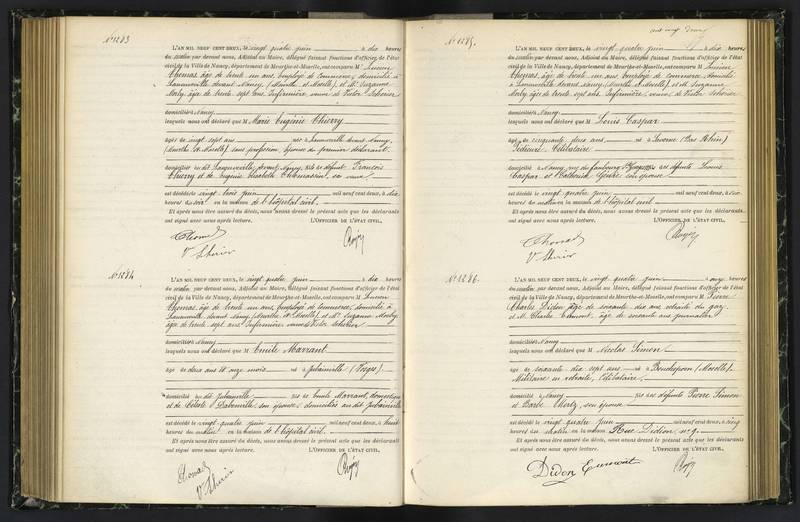 N° 1283
L'AN MIL NEUF CENT DEUX, le vingt quatre juin à dix heures
du matin par devant Nous, Adjoint au Maire, délégué faisant fonctions d'officier de l'état
civil de la Ville de Nancy, département de Meurthe-et-Moselle, ont comparu M. Lucien
Thomas âgé de trente un ans, employé de commerce, domicilié à
Laneuveville devant Nancy, (Meurthe et Moselle), et Me Suzanne
Morly, âgée de trente sept ans, Infirmière, veuve de Victor Scherier
domiciliés à Nancy
lesquels nous ont déclaré que M Marie Eugénie Thierry
âgée de vingt sept ans née à Laneuveville devant Nancy,
(Meurthe et Moselle) sans profession, épouse du premier déclarant
domiciliée au dit Laneuveville devant Nancy, fille de défunt François
Thierry et de Eugénie Elisabeth Thomassin, sa veuve
est décédée le vingt trois juin mil neuf cent deux, à dix
heures du soir en la maison de l'hôpital civil.
Et après nous être assuré du décès, nous avons dressé le présent acte que les déclarants
ont signé avec nous après lecture. L'OFFICIER DE L'ÉTAT CIVIL,
Thomas
N° 1284
L'AN MIL NEUF CENT DEUX, le vingt quatre juin à dix heures
du matin, par devant Nous, Adjoint au Maire, délégué faisant fonctions d'officier de l'état
civil de la Ville de Nancy, département de Meurthe-et-Moselle, ont comparu M Lucien
Thomas, âgé de trente un ans, employé de commerce, domicilié à
Laneuveville devant Nancy (Meurthe et Moselle) et Me Suzanne Morly
âgée de trente sept ans Infirmière veuve de Victor Scherier
domiciliés à Nancy
lesquels nous ont déclaré que M Emile Marrant
âgé de deux ans et onze mois né à Jubainville (Vosges)
domicilié au dit Jubainville fils de Emile Marrant, domestique
et de Céleste son épouse, domiciliés au dit Jubainville
est décédé le vingt quatre juin mil neuf cent deux, à huit
heures du matin en la maison de l'hôpital civil.
Et après nous être assuré du décès, nous avons dressé le présent acte que les déclarants
ont signé avec nous après lecture. L'OFFICIER DE L'ÉTAT CIVIL,
Thomas
N° 1285
L'AN MIL NEUF CENT DEUX, le vingt quatre juin à dix heures
du matin par devant Nous, Adjoint au Maire, délégué faisant fonctions d'officier de l'état
civil de la Ville de Nancy, département de Meurthe-et-Moselle, ont comparu M Lucien
Thomas, âgé de trente un ans, employé de commerce, domicilié
à Laneuveville devant Nancy, (Meurthe et Moselle) et Me Suzanne
Morly âgée de trente sept ans, Infirmière, veuve de Victor Scherier
domiciliés à Nancy
lesquels nous ont déclaré que M Louis Gaspar
âgé de cinquante deux ans né à Saverne (Bas Rhin)
Célibataire
domicilié à Nancy, rue du faubourg fils de défunts Louis
Gaspar et Catherine son épouse
est décédé le vingt quatre juin mil neuf cent deux, à six
heures du matin en la maison de l'hôpital civil
Et après nous être assuré du décès, nous avons dressé le présent acte que les déclarants
ont signé avec nous après lecture. L'OFFICIER DE L'ÉTAT CIVIL,
Thomas
N° 1286.
L'AN MIL NEUF CENT DEUX, le vingt quatre juin à onze heures
du matin, par devant Nous, Adjoint au Maire, délégué faisant fonctions d'officier de l'état
civil de la Ville de Nancy, département de Meurthe-et-Moselle, ont comparu M Pierre
Charles Didon âgé de soixante dix ans retraité du gaz
et M. Charles Eumont, âgé de soixante ans journalier
domiciliés à Nancy
lesquels nous ont déclaré que M Nicolas Simon
âgé de soixante dix sept ans né à (Moselle)
Militaire en retraite, Célibataire
domicilié à Nancy fils de défunts Pierre Simon
et Barbe Mertz, son épouse
est décédé le vingt quatre juin mil neuf cent deux, à cinq
heures du matin en la maison Rue Didion, n° 9.
Et après nous être assuré du décès, nous avons dressé le présent acte que les déclarants
ont signé avec nous après lecture. L'OFFICIER DE L'ÉTAT CIVIL,
Didon Eumont